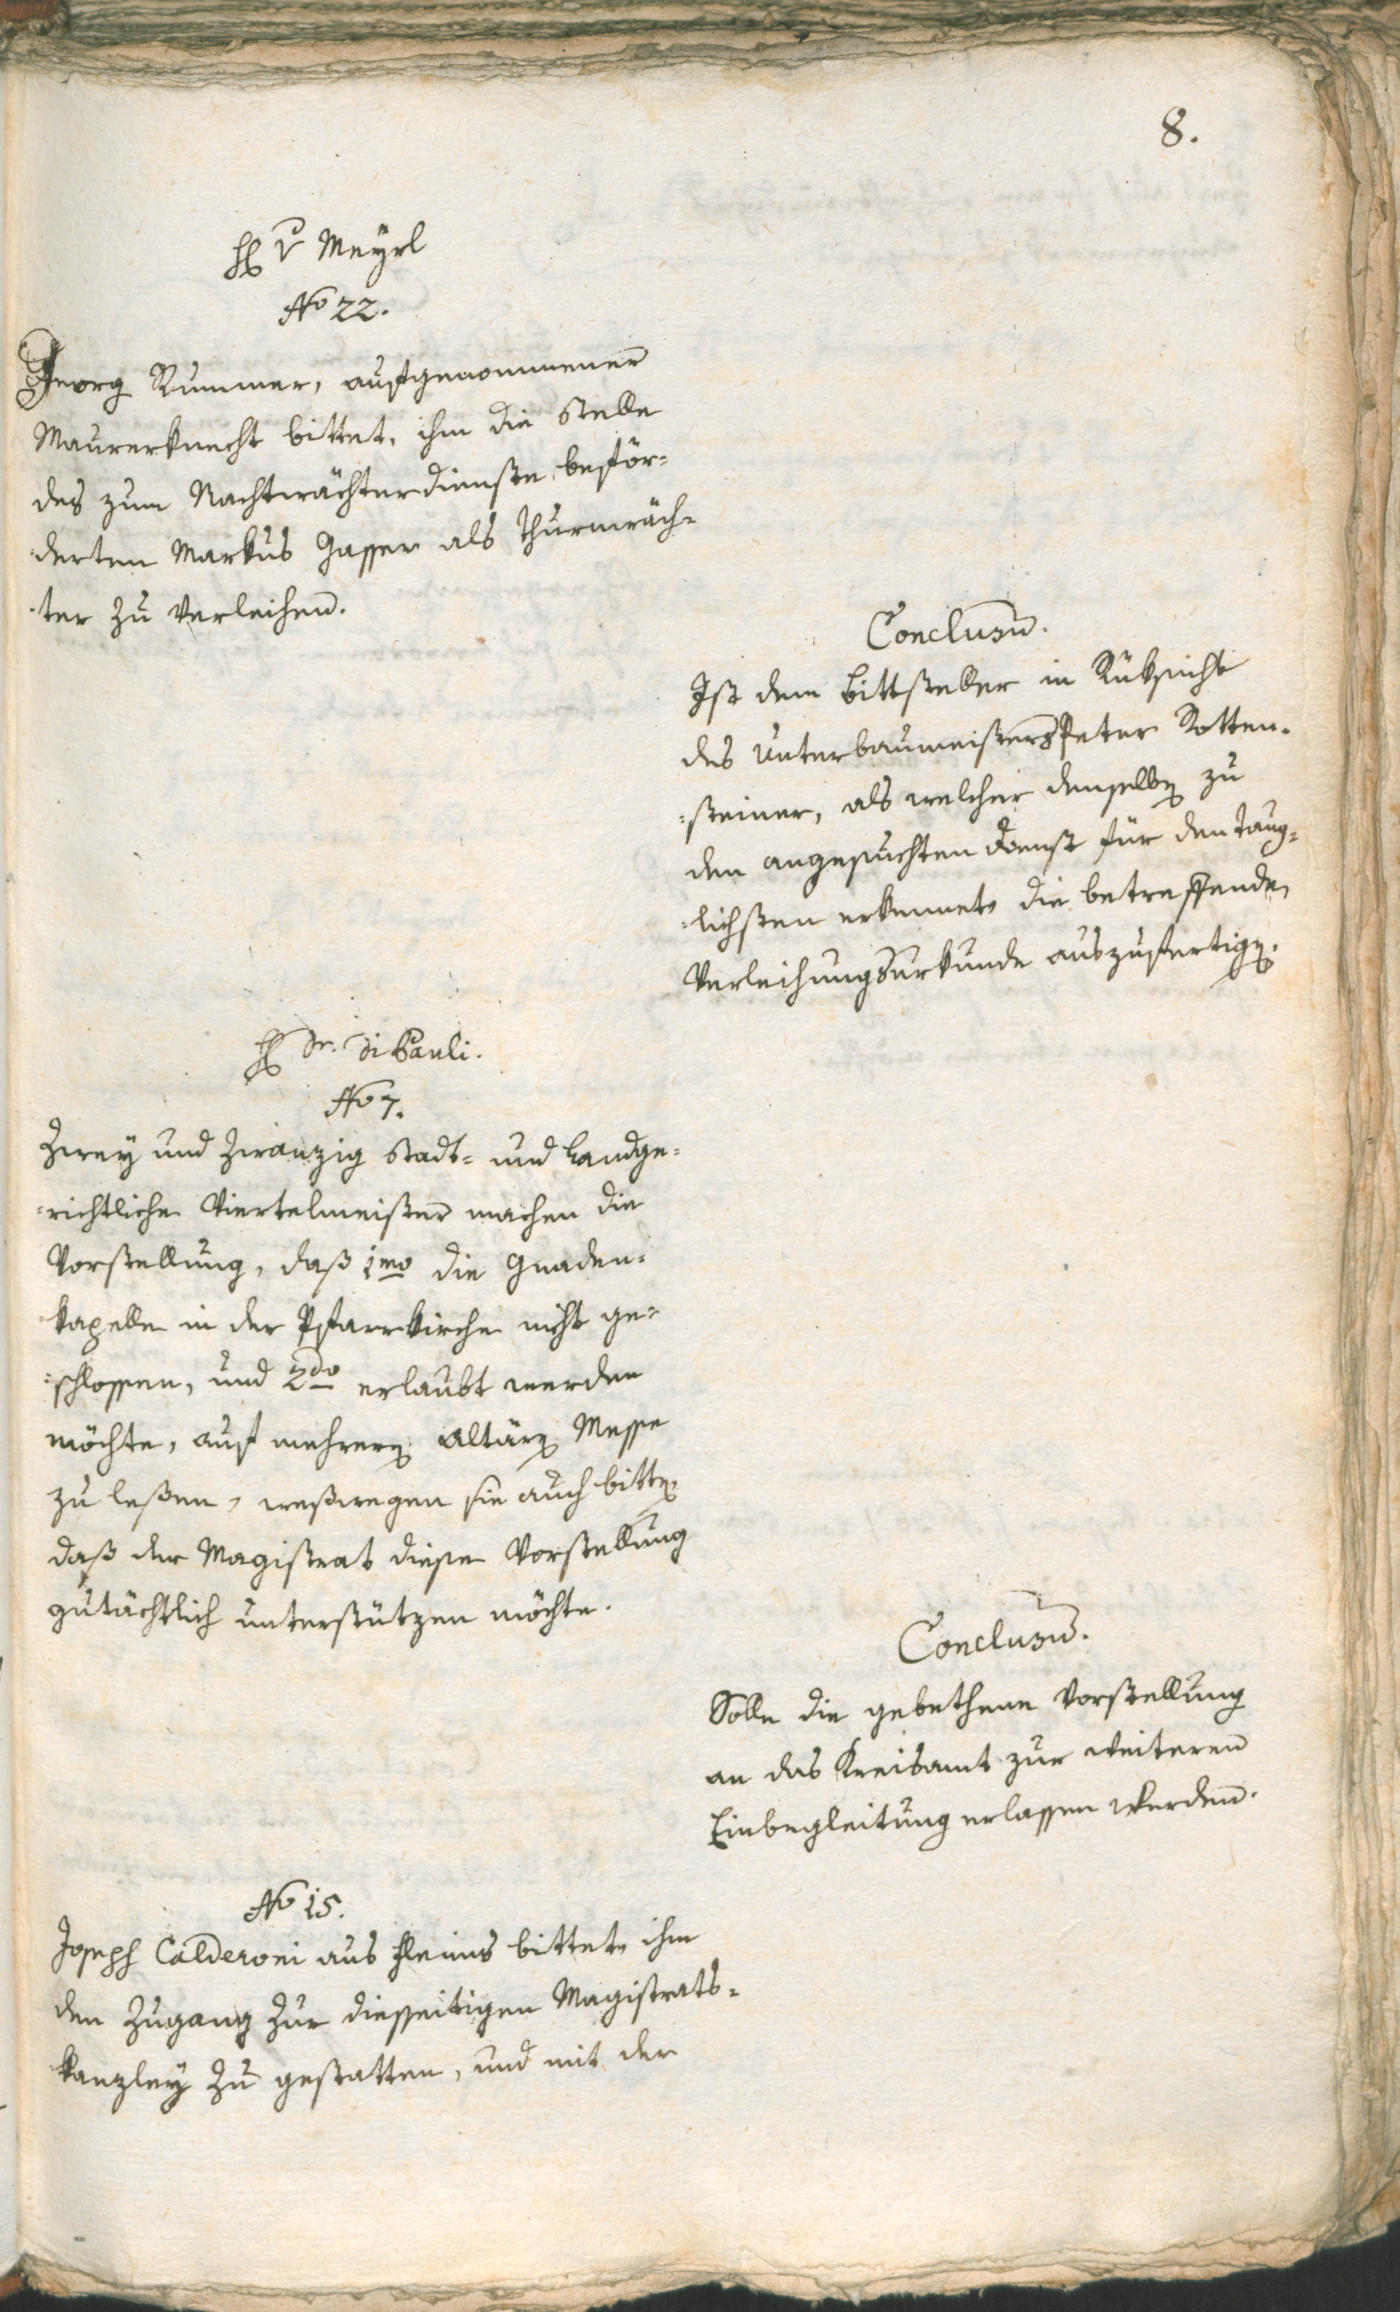 8.
H v Meyrl
No 22.
Georg Rummer, aufgenommener
Maurerknecht bittet, ihm die Stelle
des zum Nachtwächterdienste beför-
derten Markus Gasser als Thurmwäch-
ter zu verleihen.
Conclusum.
Ist dem Bittsteller in Rüksicht
des Unterbaumeisters Peter Rotten-
steiner, als welcher denselben zu
den angesuchten Dienst für den taug-
lichsten erkennet, die betreffende
Verleihungsurkunde auszufertigen.
H Dr. Di Pauli.
No 7.
Zwey und zwanzig Stadt- und Landge-
richtliche Viertelmeister machen die
Vorstellung, daß 1mo die Gnaden-
kapelle in der Pfarrkirche nicht ge-
schlossen, und 2do erlaubt werden
möchte, auf mehrern Altären Messe
zu leßen, weßwegen sie auch bitten,
daß der Magistrat diese Vorstellung
gutächtlich unterstützen möchte.
Conclusum.
Solle die gebethene Vorstellung
an das Kreisamt zur weiteren
Einbegleitung erlassen werden.
No 15.
Joseph Calderoni aus Fleims bittet, ihm
den Zugang zur diesseitigen Magistrats-
kanzley zu gestatten, und mit der